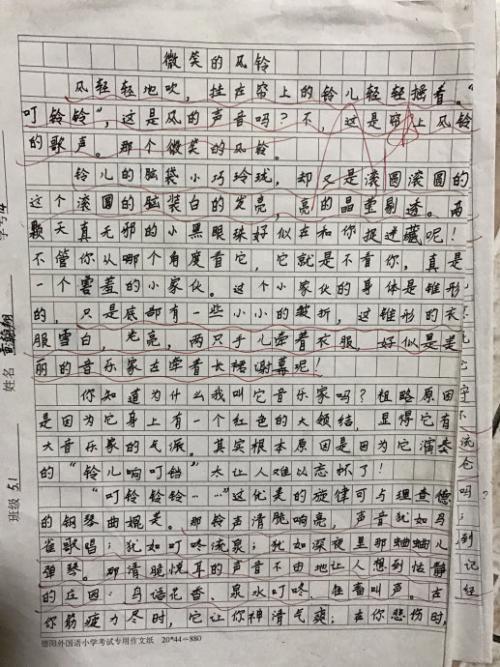 微笑的风铃
风轻轻地吹，挂在帘上的铃儿轻轻摇着。“
叮铃铃”，这是风的声音吗？不，这是帘上风铃
的歌声。那个微笑的风铃。
铃儿的脑袋小巧玲珑，却又是滚圆滚圆的
这个滚圆的脑袋白的发亮，亮的晶莹剔透。两
颗天真无邪的小黑眼珠好似在和你捉迷藏呢！
不管你从哪个角度看它，它就是不看你，真是
一个害羞的小家伙。这个小家伙的身体是锥形
的，只是底部有一些小小的皱折，这锥形的衣
服雪白，光亮，两只手儿牵着衣服，好似是美
丽的音乐家在牵着长裙谢幕呢！
你知道为什么我叫它音乐家吗？粗略原因
是因为它身上有一个红色的大领结，显得它有
大音乐家的气派。其实根本原因是因为它演奏
的“铃儿响叮铛”太让人难以忘怀了！
“叮铃铃铃……”这优美的旋律可与理查德
的钢琴曲媲美。那铃声清脆响亮，声音犹如鸟
雀歌唱；犹如叮咚流泉；犹如深夜里那蛐蛐儿
弹琴。那清脆悦耳的声音不由地让人想到恬静
的庄园：鸟语花香、泉水叮咚、蛙声。在
你筋疲力尽时，它让你神清气爽；在你悲伤时，
德阳外国语小学考试专用作文纸 20*44=880
班级 5.1
姓名
学号 14